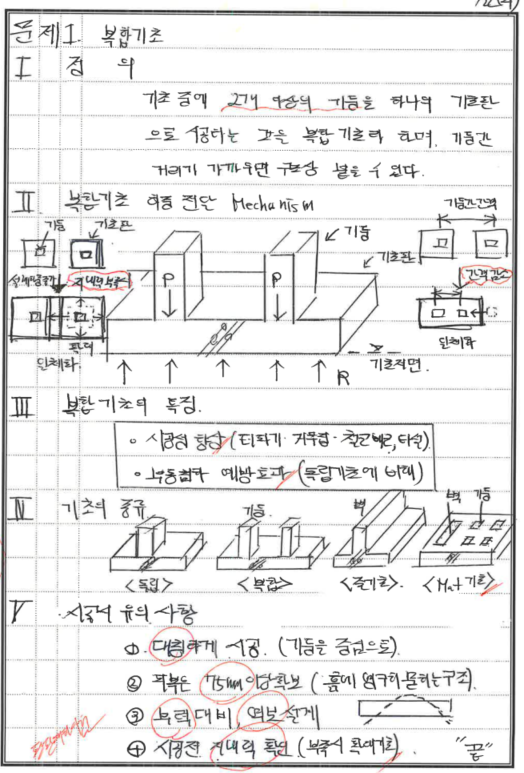 문제 1. 복합기초
I 정 의
기초 중에 2개 이상의 기둥을 하나의 기초판
으로 시공하는 것을 복합기초라 하며, 기둥간
거리가 가까우면 구조상 붙을 수 있다.
II. 복합기초 하중 전달 Mechanism
기둥 기초판
기둥간격
기둥
기초판
지내력부족
간격감소
P P
확대
단체화
단체화
R
기초저면
III 복합기초의 특징.
◦ 시공성 향상 (터파기·거푸집·철근배근, 타설)
◦ 부동침하 예방효과 (독립기초에 비해)
IV 기초의 종류
기둥 벽 벽 기둥
<독립> <복합> <줄기초>. <Mat 기초>
V 시공시 유의 사항
① 대칭하게 시공. (기둥을 중심으로).
② 피복은 75mm이상확보 (흙에 영구히 묻히는구조).
③ 부력대비 역보설계
④ 시공전 지내력 확인 (부족시 확대기초).
"끝"